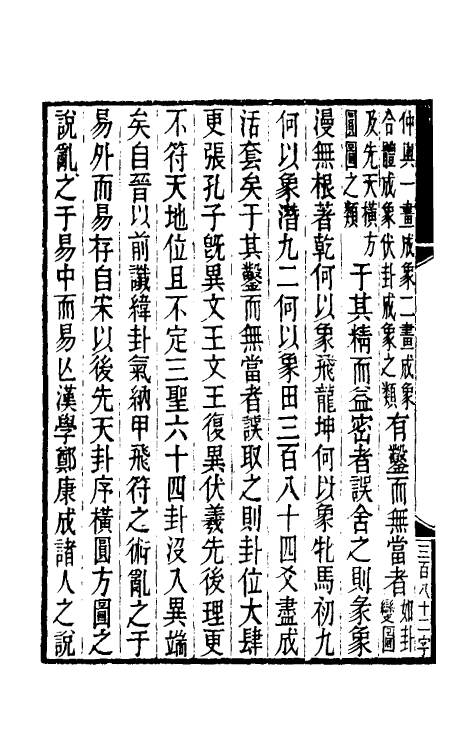 仲與一畫成象二畫成象合體成象伏卦成象之類有鑿而無當者如卦變圖
及先天橫方圓圖之類于其精而益密者誤舍之則象象
漫無根著乾何以象飛龍坤何以象牝馬初九
何以象潛九二何以象田三百八十四爻盡成
活套矣于其鑿而無當者誤取之則卦位大肆
更張孔子旣異文王文王復異伏羲先後理更
不符天地位且不定三聖六十四卦沒入異端
矣自晉以前讖緯卦氣納甲飛符之術亂之于
易外而易存自宋以後先天卦序橫圓方圖之
說亂之于易中而易亾漢學鄭康成諸人之說
三百八十二字